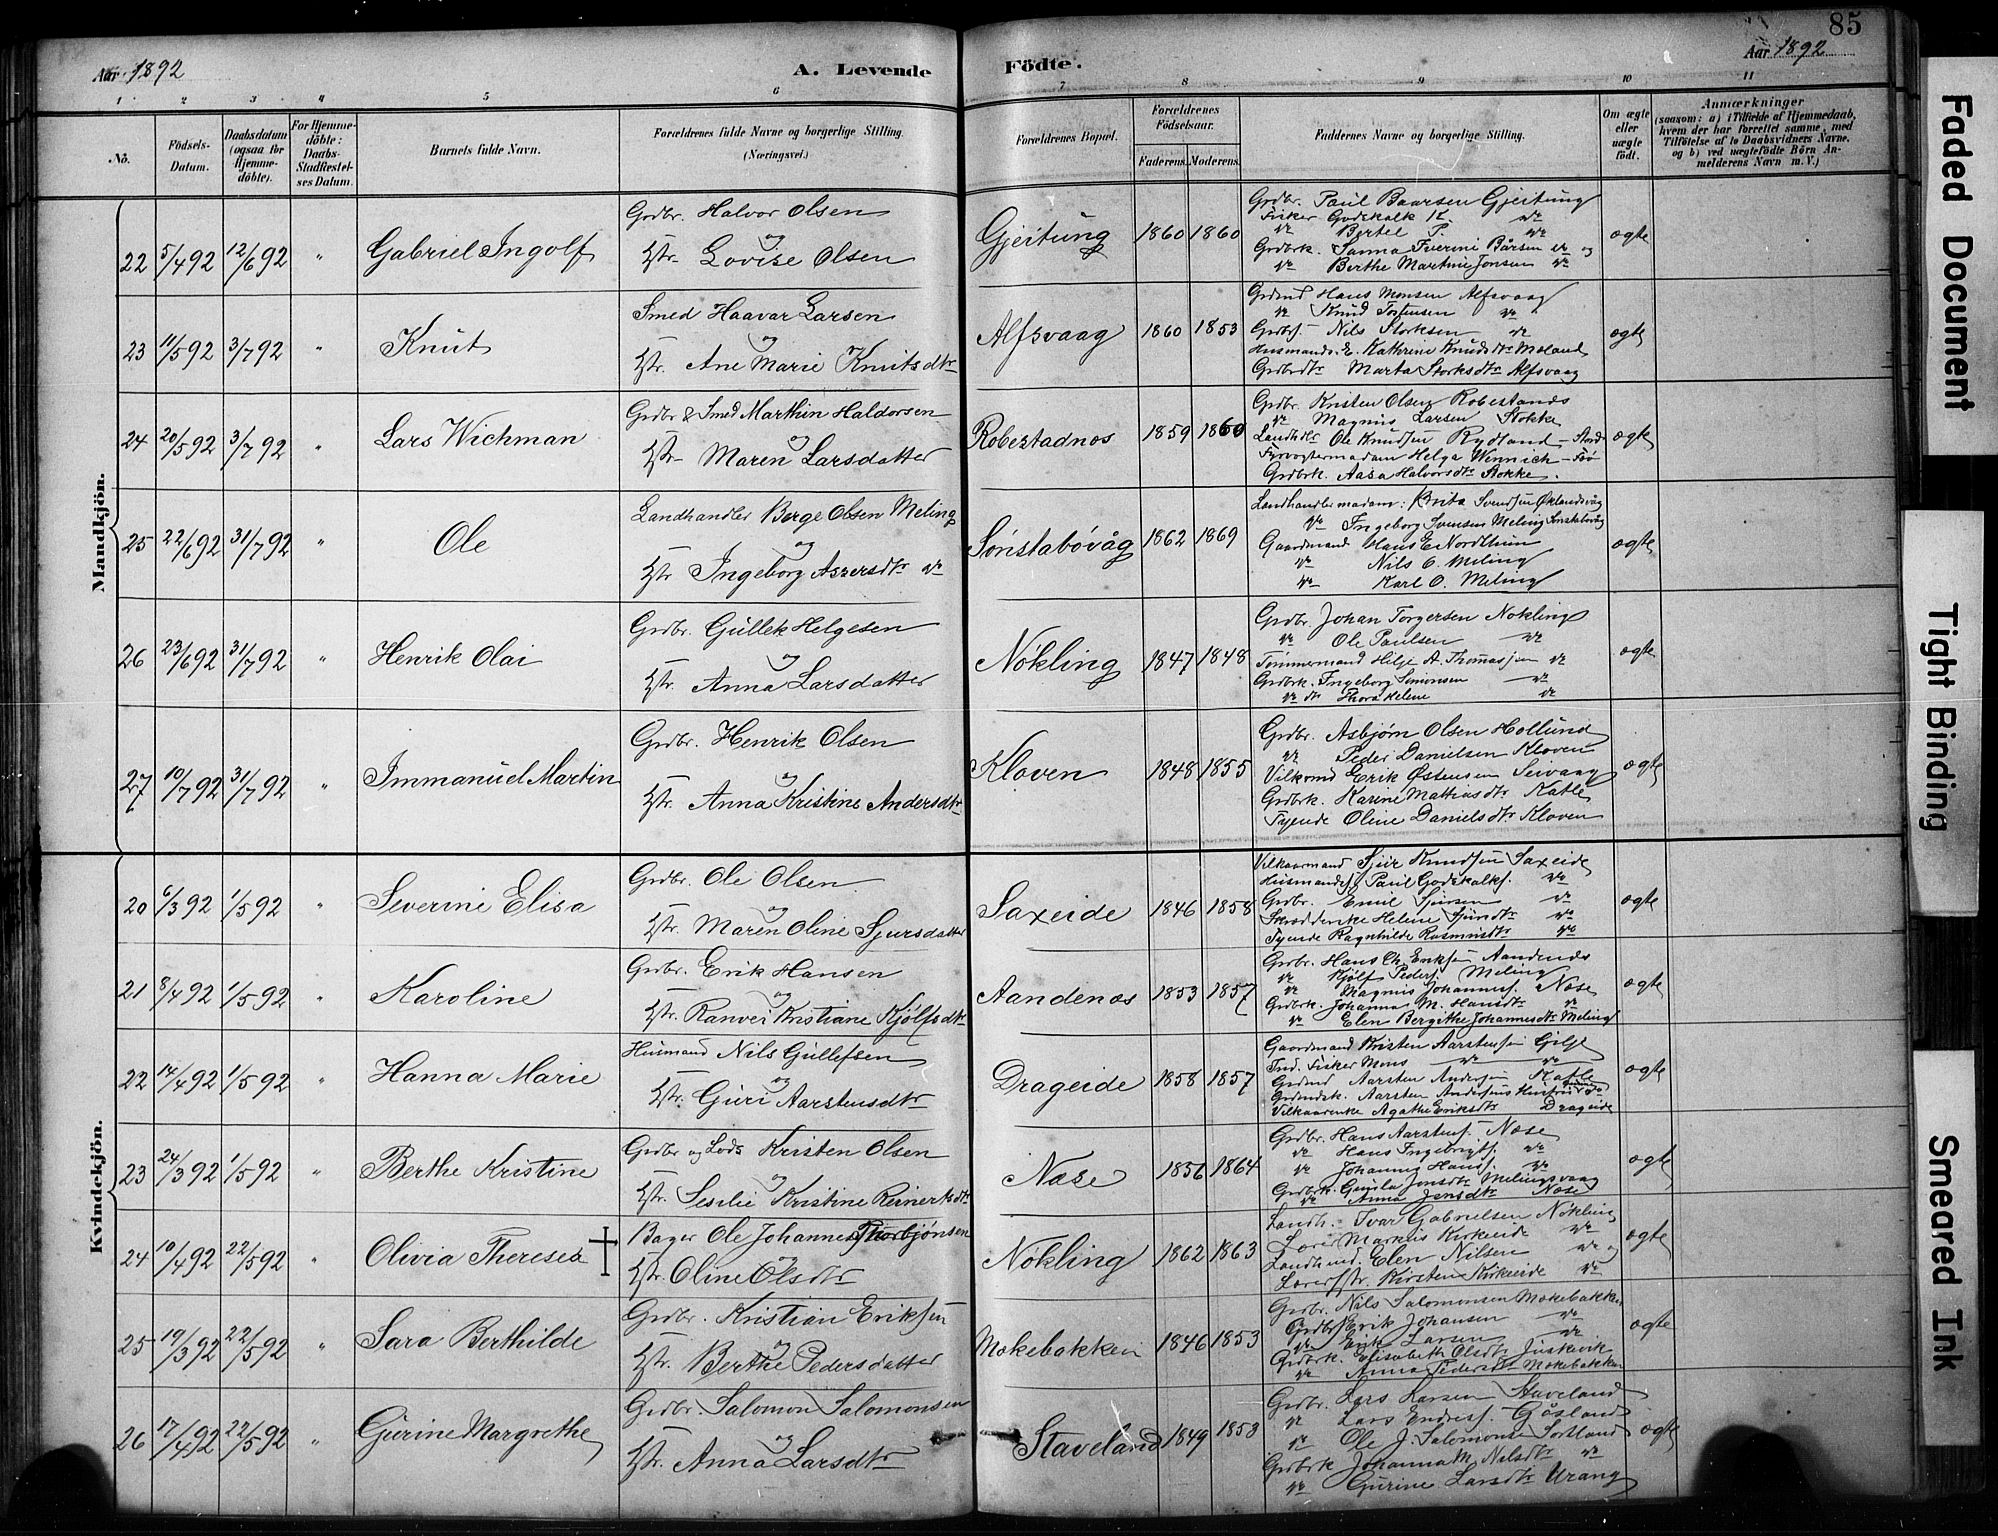 85
Aar 1892
A. Levende
Födte.
Aar 1892
1 2 3 4 5 6 7 8 9 10 11
No.
Födsels-Datum.
Daabsdatum (ogsaa for Hjemme-döbte).
For Hjemme-döbte: Daabs-Stadfæstel-ses Datum.
Barnets fulde Navn.
Forældrenes fulde Navne og borgerlige Stilling.
(Næringsvei.)
Forældrenes Bopæl.
Forældrenes Födselsaar.
Faderens. Moderens.
Faddernes Navne og borgerlige Stilling.
Om ægte eller uægte födt.
Anmærkninger
(saasom: a) i Tilfælde af Hjemmedaab, hvem der har forrettet samme, med Tilföielse af to Daabsvidners Navne. og b) ved uægtefödte Börn An-melderens Navn m. V.)
Mandkjön.
22 5/4 92 12/6 92 " Gabriel Ingolf
Grdbr. Halvor Olsen
og
Hstr. Lovise Olsen
Gjeitung 1860 1860
Grdbr. Paul Baarsen Gjeitung
Fisker Godskalk K. do
do Bertel P. do
Grdbrk. Sanna Severine Bårsen do og
do Berthe Martine Jonsen do
ægte
23 11/5 92 3/7 92 " Knut
Smed Haavar Larsen
og
Hstr. Ane Marie Knutsdtr
Alfsvaag 1860 1853
Grdmd Hans Monsen Alfsvaag
do Knud Torfensen do
Grdbrs. Nils Storksen do
Husmands. E. Kathrine Knudsdtr Moland
Grdbrdtr Marta Storksdtr Alfsvaag
ægte
24 20/5 92 3/7 92 " Lars Wichman
Grdbr & Smed Marthin Haldorsen
og
Hstr Maren Larsdatter
Robestadnæs 1859 1860
Grdbr. Kristen Olsen Robestadnæs
do Magnus Larsen Stokke
Landhdlr Ole Knudsen Rydland - Stord
Fyrvogtermadam Helga Wennich
Grdbrk. Aasa Halvorsdtr Stokke.
ægte
25 22/6 92 31/7 92 " Ole
Landhandler Børge Olsen Meling
og
Hstr. Ingeborg Assersdtr do
Sønstabøvåg 1862 1869
Landhandlermadam: Brita Svendsen Øklandsvåg
do Ingeborg Svensen Meling Sønstabøvåg
Gaardmand Hans E. Nordthun
do Nils O. Meling
do Karl O. Meling
ægte
26 23/6 92 31/7 92 " Henrik Olai
Grdbr. Gullek Helgesen
og
Hstr. Anna Larsdatter
Nökling 1847 1848
Grdbr. Johan Torgersen Nökling
do Ole Paulsen do
Tømmermand Helge A. Thomassen do
Grdbrk. Ingeborg Simonsen do
do dtr Thora Helene do
ægte
27 10/7 92 31/7 92 " Immanuel Martin
Grdbr. Henrik Olsen
og
Hstr. Anna Kristine Andersdtr
Kloven 1848 1855
Grdbr. Asbjørn Olsen Hollund
do Peder Danielsen Kloven
Vilkrmd Erik Østensen Seivaag
Grdbrk. Karine Mattiasdtr Katle
Tyende Oline Danielsdtr Kloven
ægte
Kvindekjön.
20 6/3 92 1/5 92 " Severine Elisa
Grdbr. Ole Olsen
og
Hstr. Maren Oline Sjursdatter
Saxeide 1846 1858
Vilkaarmand Sjur Knudsen Saxeide
Husmands. Paul Godskalks. do
Grdbr. Emil Sjursen do
Helene do
Tyende Ragnhilde Rasmusdtr do
ægte
21 8/4 92 1/5 92 " Karoline
Grdbr. Erik Hansen
og
Hstr. Ranvei Kristiane Kjölfsdtr
Aandenæs 1853 1857
Grdbr. Hans Ch. Eriksen Aandenæs
do Kjölf Peders. Meling
do Magnus Johannes. Næse
Grdbrk. Johanna M. Hansdtr do
do Elen Bergithe Johannesdtr Meling
ægte
22 14/4 92 1/5 92 " Hanna Marie
Husmand Nils Gullefsen
og
Hstr. Guri Aarstensdtr
Drageide 1858 1857
Gaardmand Kristen Aarstensen Gilje
Ind. Fisker Mons do do
Grdmd Aarsten Andersen Katle
Grdmdsk. Aarsten Andersens Hustru do
Vilkaarenke Agathe Eriksdtr Drageide
ægte
23 24/3 92 1/5 92 " Berthe Kristine
Grdbr og Lods Kristen Olsen
og
Hstr. Sesilie Kristine Reinertsdtr
Næse 1856 1864
Grdbr. Hans Aarstens. Næse
do Hans Ingebrigts. do
do Johannes Hans. do
Grdbrk. Gunla Jonsdtr Melingsvaag
do Anna Jensdtr Næse
ægte
24 10/4 92 22/5 92 " Olivia Theresea
Bager Ole Johannes Thorbjønsen
og
Hstr. Oline Olsdtr
Nökling 1862 1863
Landh. Ivar Gabrielsen Nökling
Lærer Markus Kirkeide do
Landhmd. Elen Nilsen do og
Lærer Hstr. Kirsten Kirkeide do
ægte
25 19/3 92 22/5 92 " Sara Berthilde
Grdbr. Kristian Eriksen
og
Hstr. Berthe Pedersdatter
Mækebakken 1846 1853
Grdbr. Nils Salomonsen Mækebakken
Grdbrs Erik Johansen do
do Erik Larsen do
Grdbrk. Elisabeth Olsdtr Juskevik
do Anna Pedersdtr Mækebakken
ægte
26 17/4 92 22/5 92 " Gurine Margrethe
Grdbr. Salomon Salomonsen
og
Hstr. Anna Larsdtr
Staveland 1849 1853
Grdbr. Lars Larsen Staveland
do Lars Endres. Gåsland
do Ole J. Salomons Sortland
Grdbrk Johanna M. Nilsdtr do
do Gurine Larsdtr Urang
ægte
Faded Document
Tight Binding
Smeared Ink